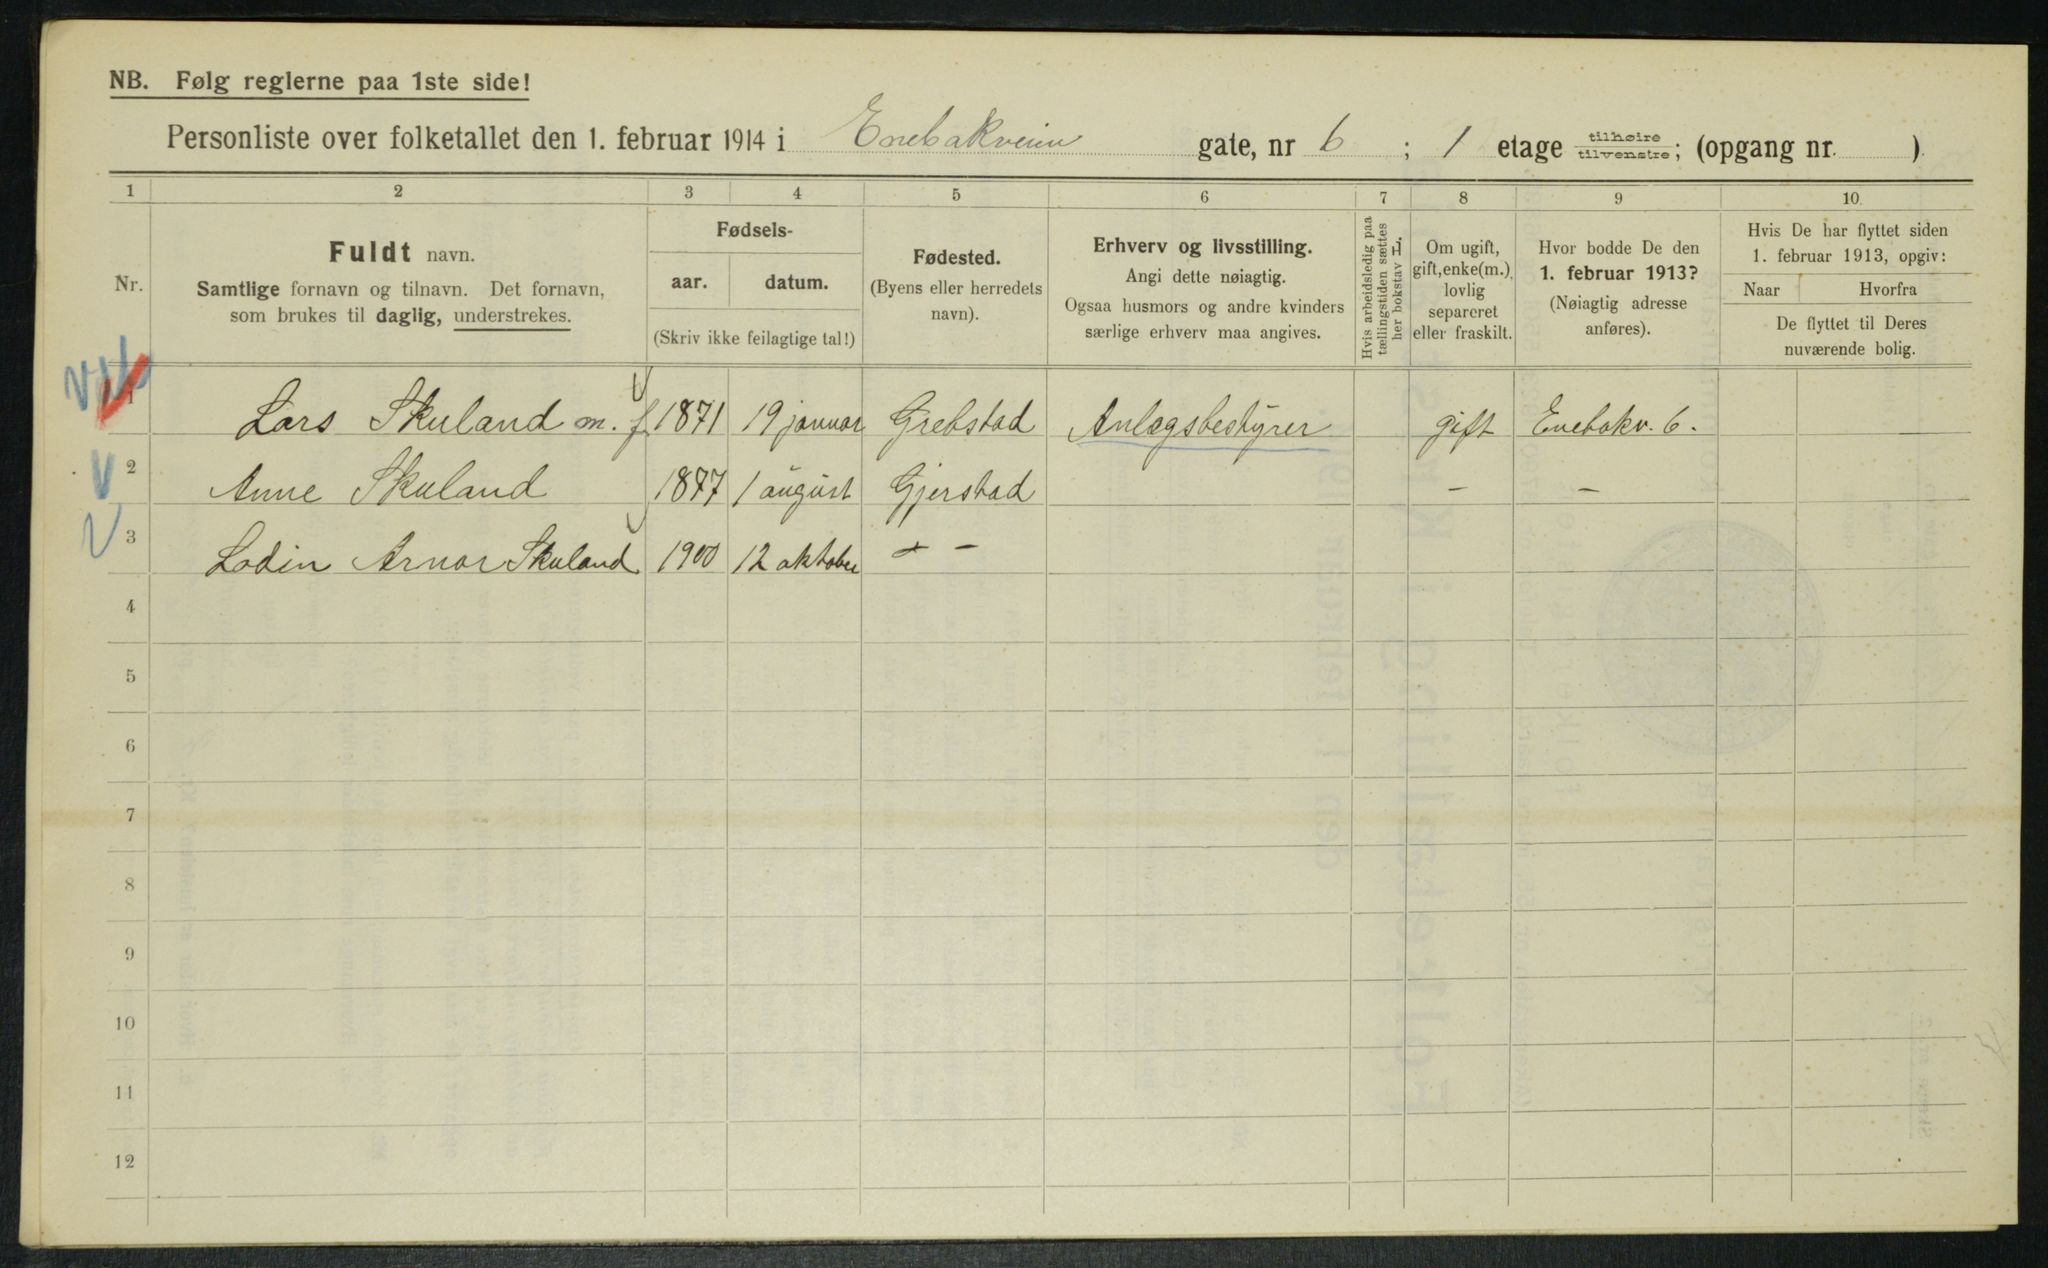 NB. Følg reglerne paa 1ste side!
Personliste over folketallet den 1. februar 1914 i Enebakveien gate, nr 6 ; 1 etage tilhøire tilvenstre; (opgang nr. )
1 2 3 4 5 6 7 8 9 10
Nr.
Fuldt navn.
Samtlige fornavn og tilnavn. Det fornavn,
som brukes til daglig, understrekes.
Fødsels-
aar. datum.
(Skriv ikke feilagtige tal!)
Fødested.
(Byens eller herredets
navn).
Erhverv og livsstilling.
Angi dette nøiagtig.
Ogsaa husmors og andre kvinders
særlige erhverv maa angives.
Hvis arbeidsledig paa
tællingstiden sættes
her bokstav L
Om ugift,
gift, enke(m.),
lovlig
separeret
eller fraskilt.
Hvor bodde De den
1. februar 1913?
(Nøiagtig adresse
anføres).
Hvis De har flyttet siden
1. februar 1913, opgiv:
Naar Hvorfra
De flyttet til Deres
nuværende bolig.
1 Lars Skuland m. f. 1871 19 januar Grebstad Anlægsbestyrer gift Enebakv. 6.
2 Anne Skuland 1877 1 august Gjerstad – –
3 Lodin Arnor Skuland 1900 12 oktober – –
4
5
6
7
8
9
10
11
12